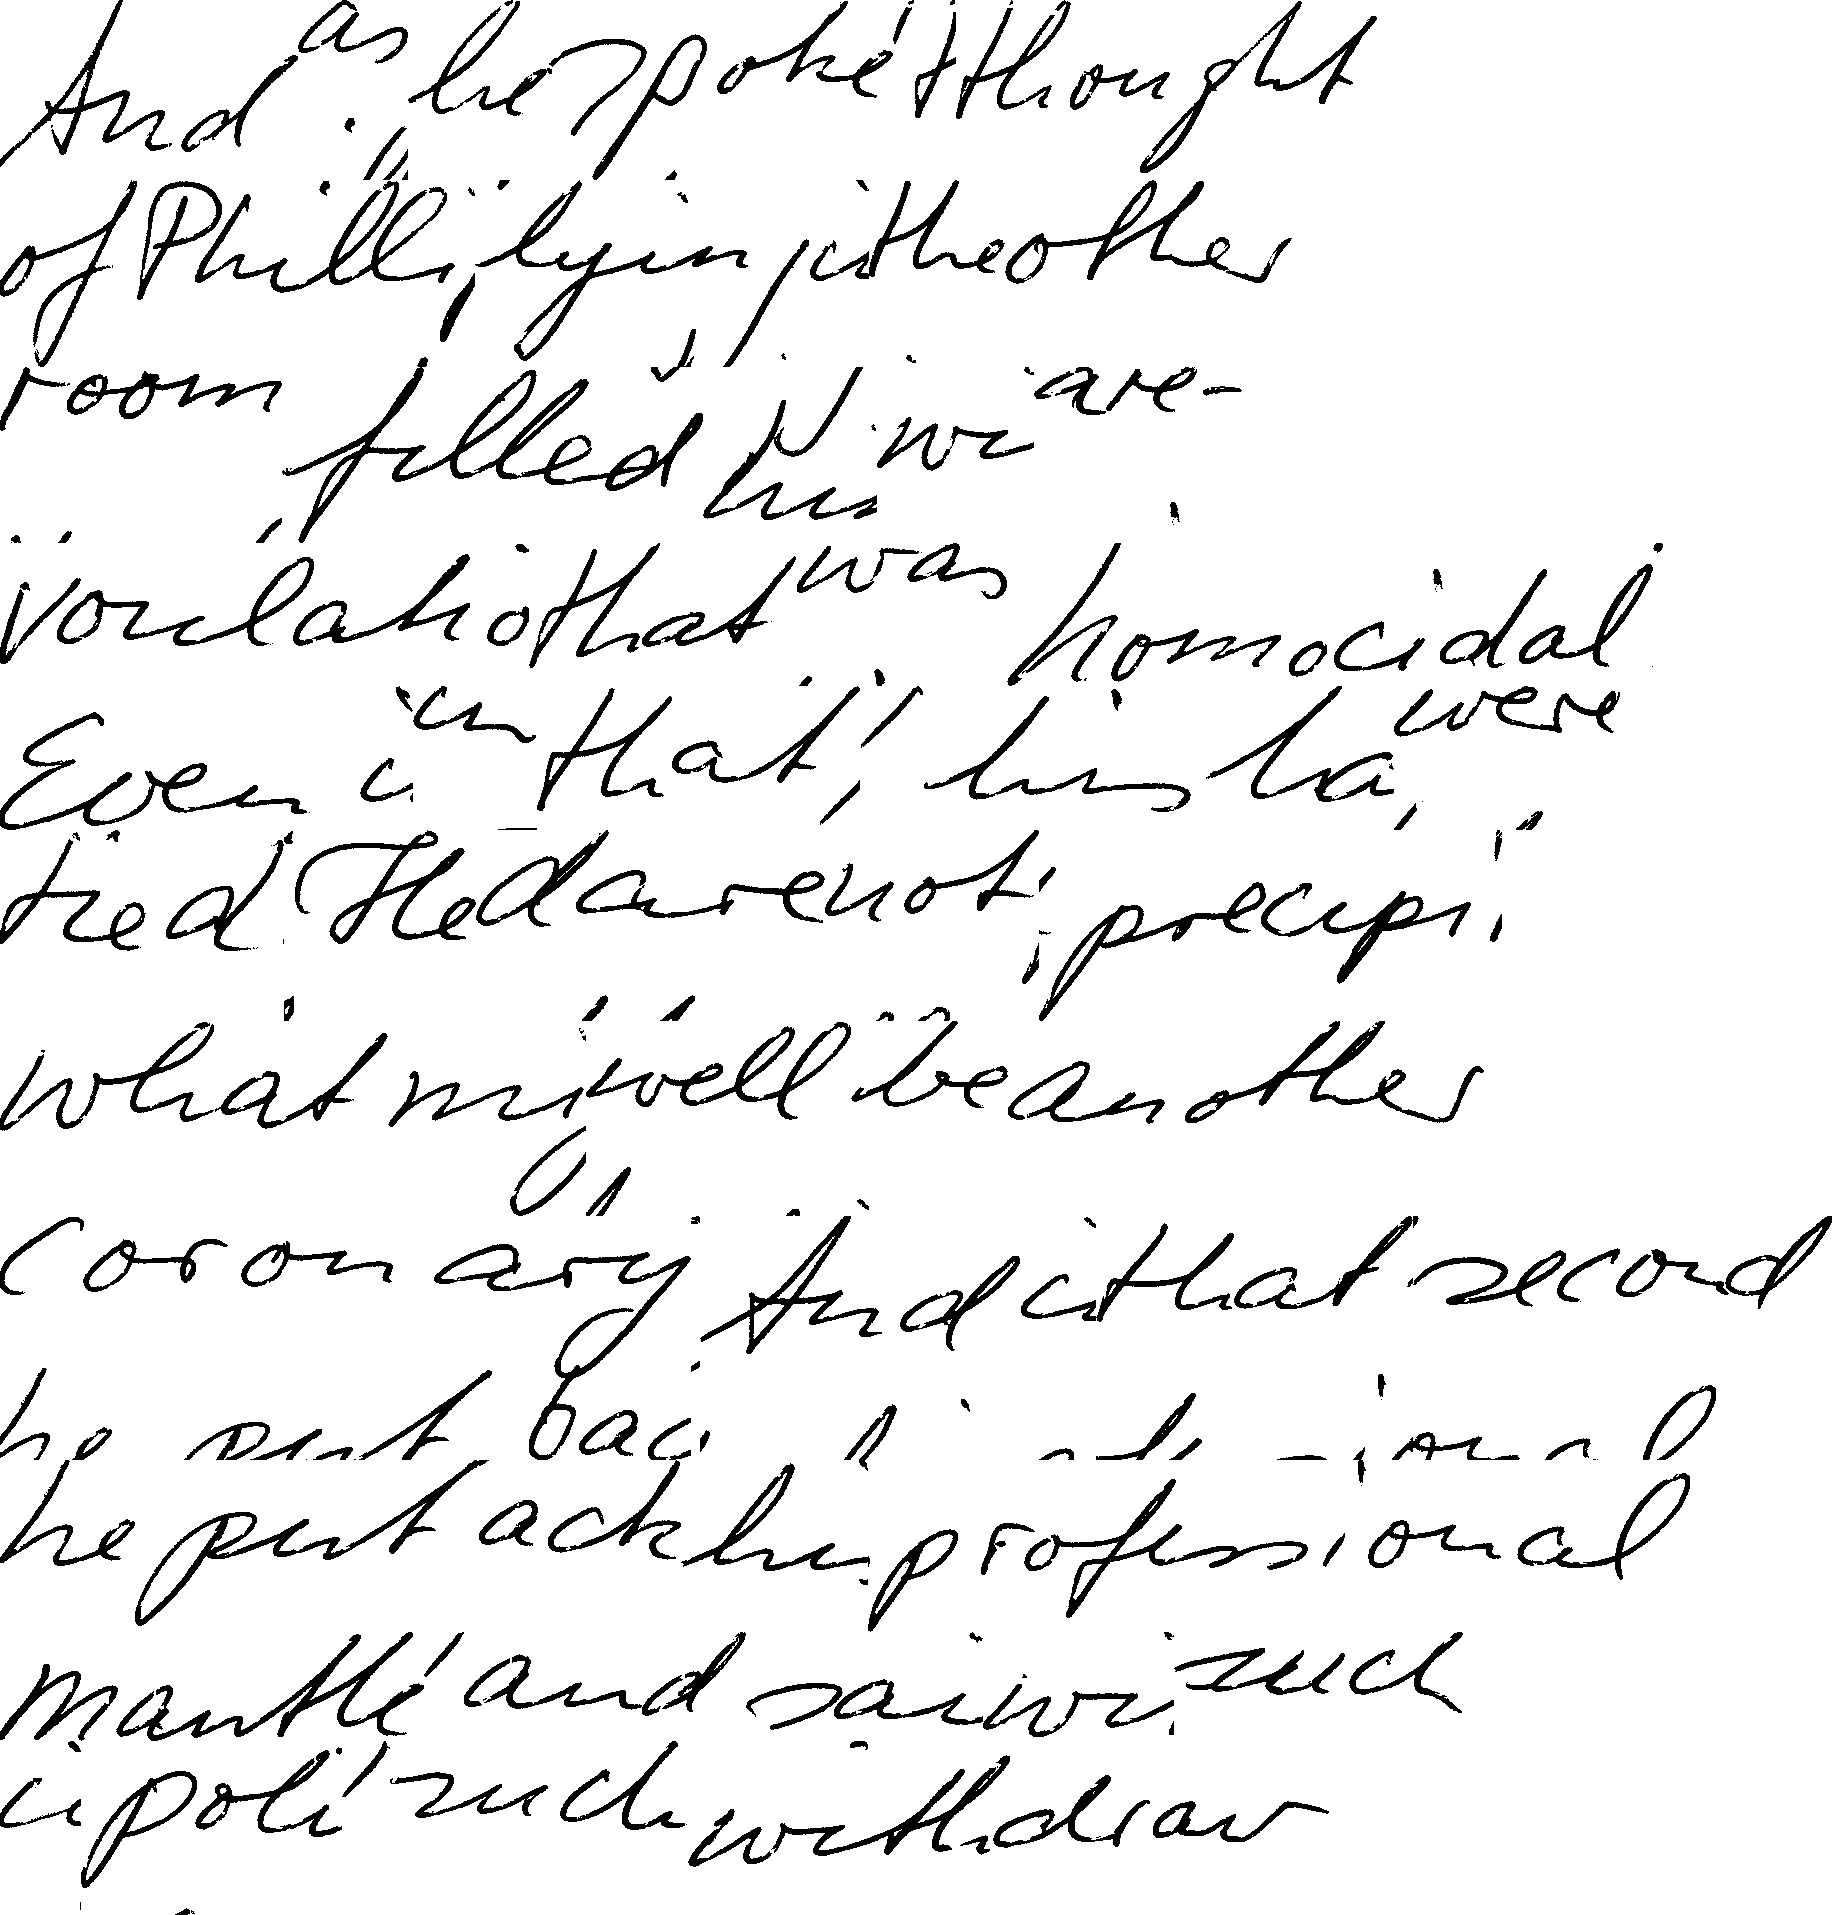 And as he spoke the thought
of Philli, lyin in the other
room filled him wi a re-
vulatio that was homocidal
Even in that, his ha, were
tied. He dare not precipi
what mi well be another
coronary And in that second
he put bac
he put ack his professional
mantle and sai wi such
i poli such withdraw